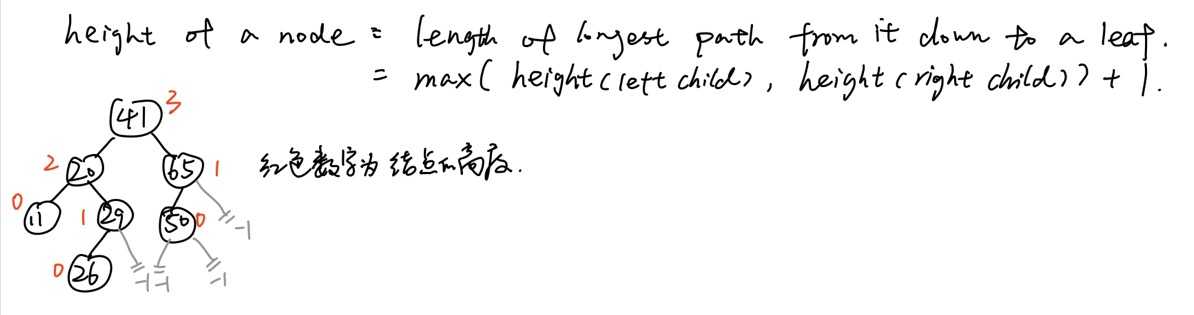 height of a node = length of longest path from it down to a leaf.
= max( height(left child), height(right child)) + 1.
41 3
2 20 65 1
红色数字为结点的高度.
0 11 1 29 50 0 -1
0 26 -1 -1 -1